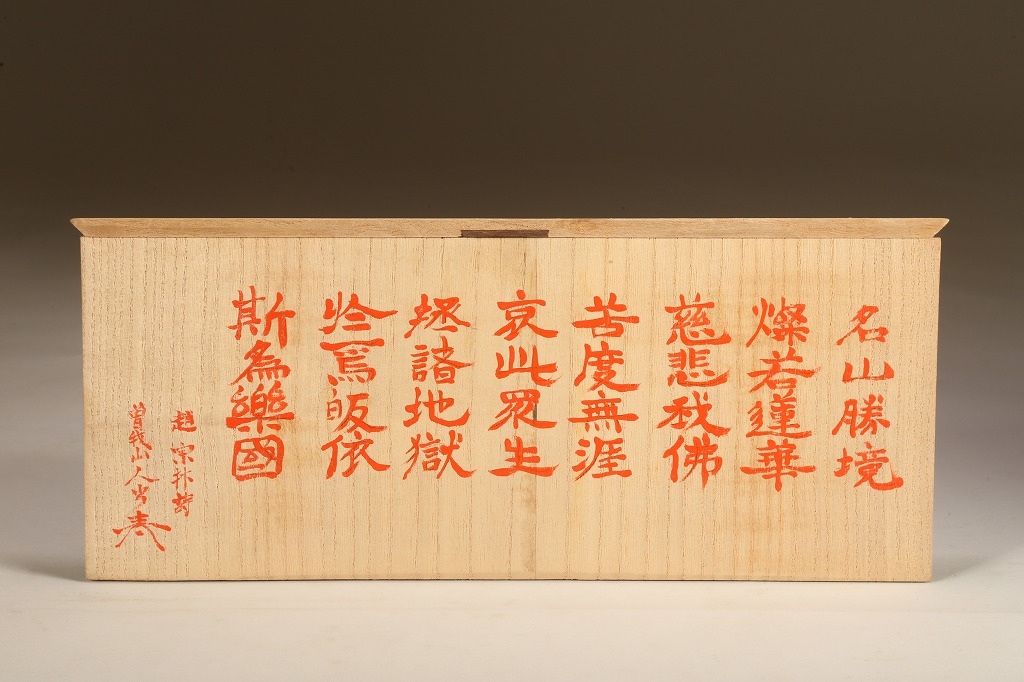 名山勝境
燦若蓮華
慈悲我佛
苦度無涯
哀此眾生
拯諸地獄
於焉皈依
斯為樂國
趙宗抃詩
曽我山人